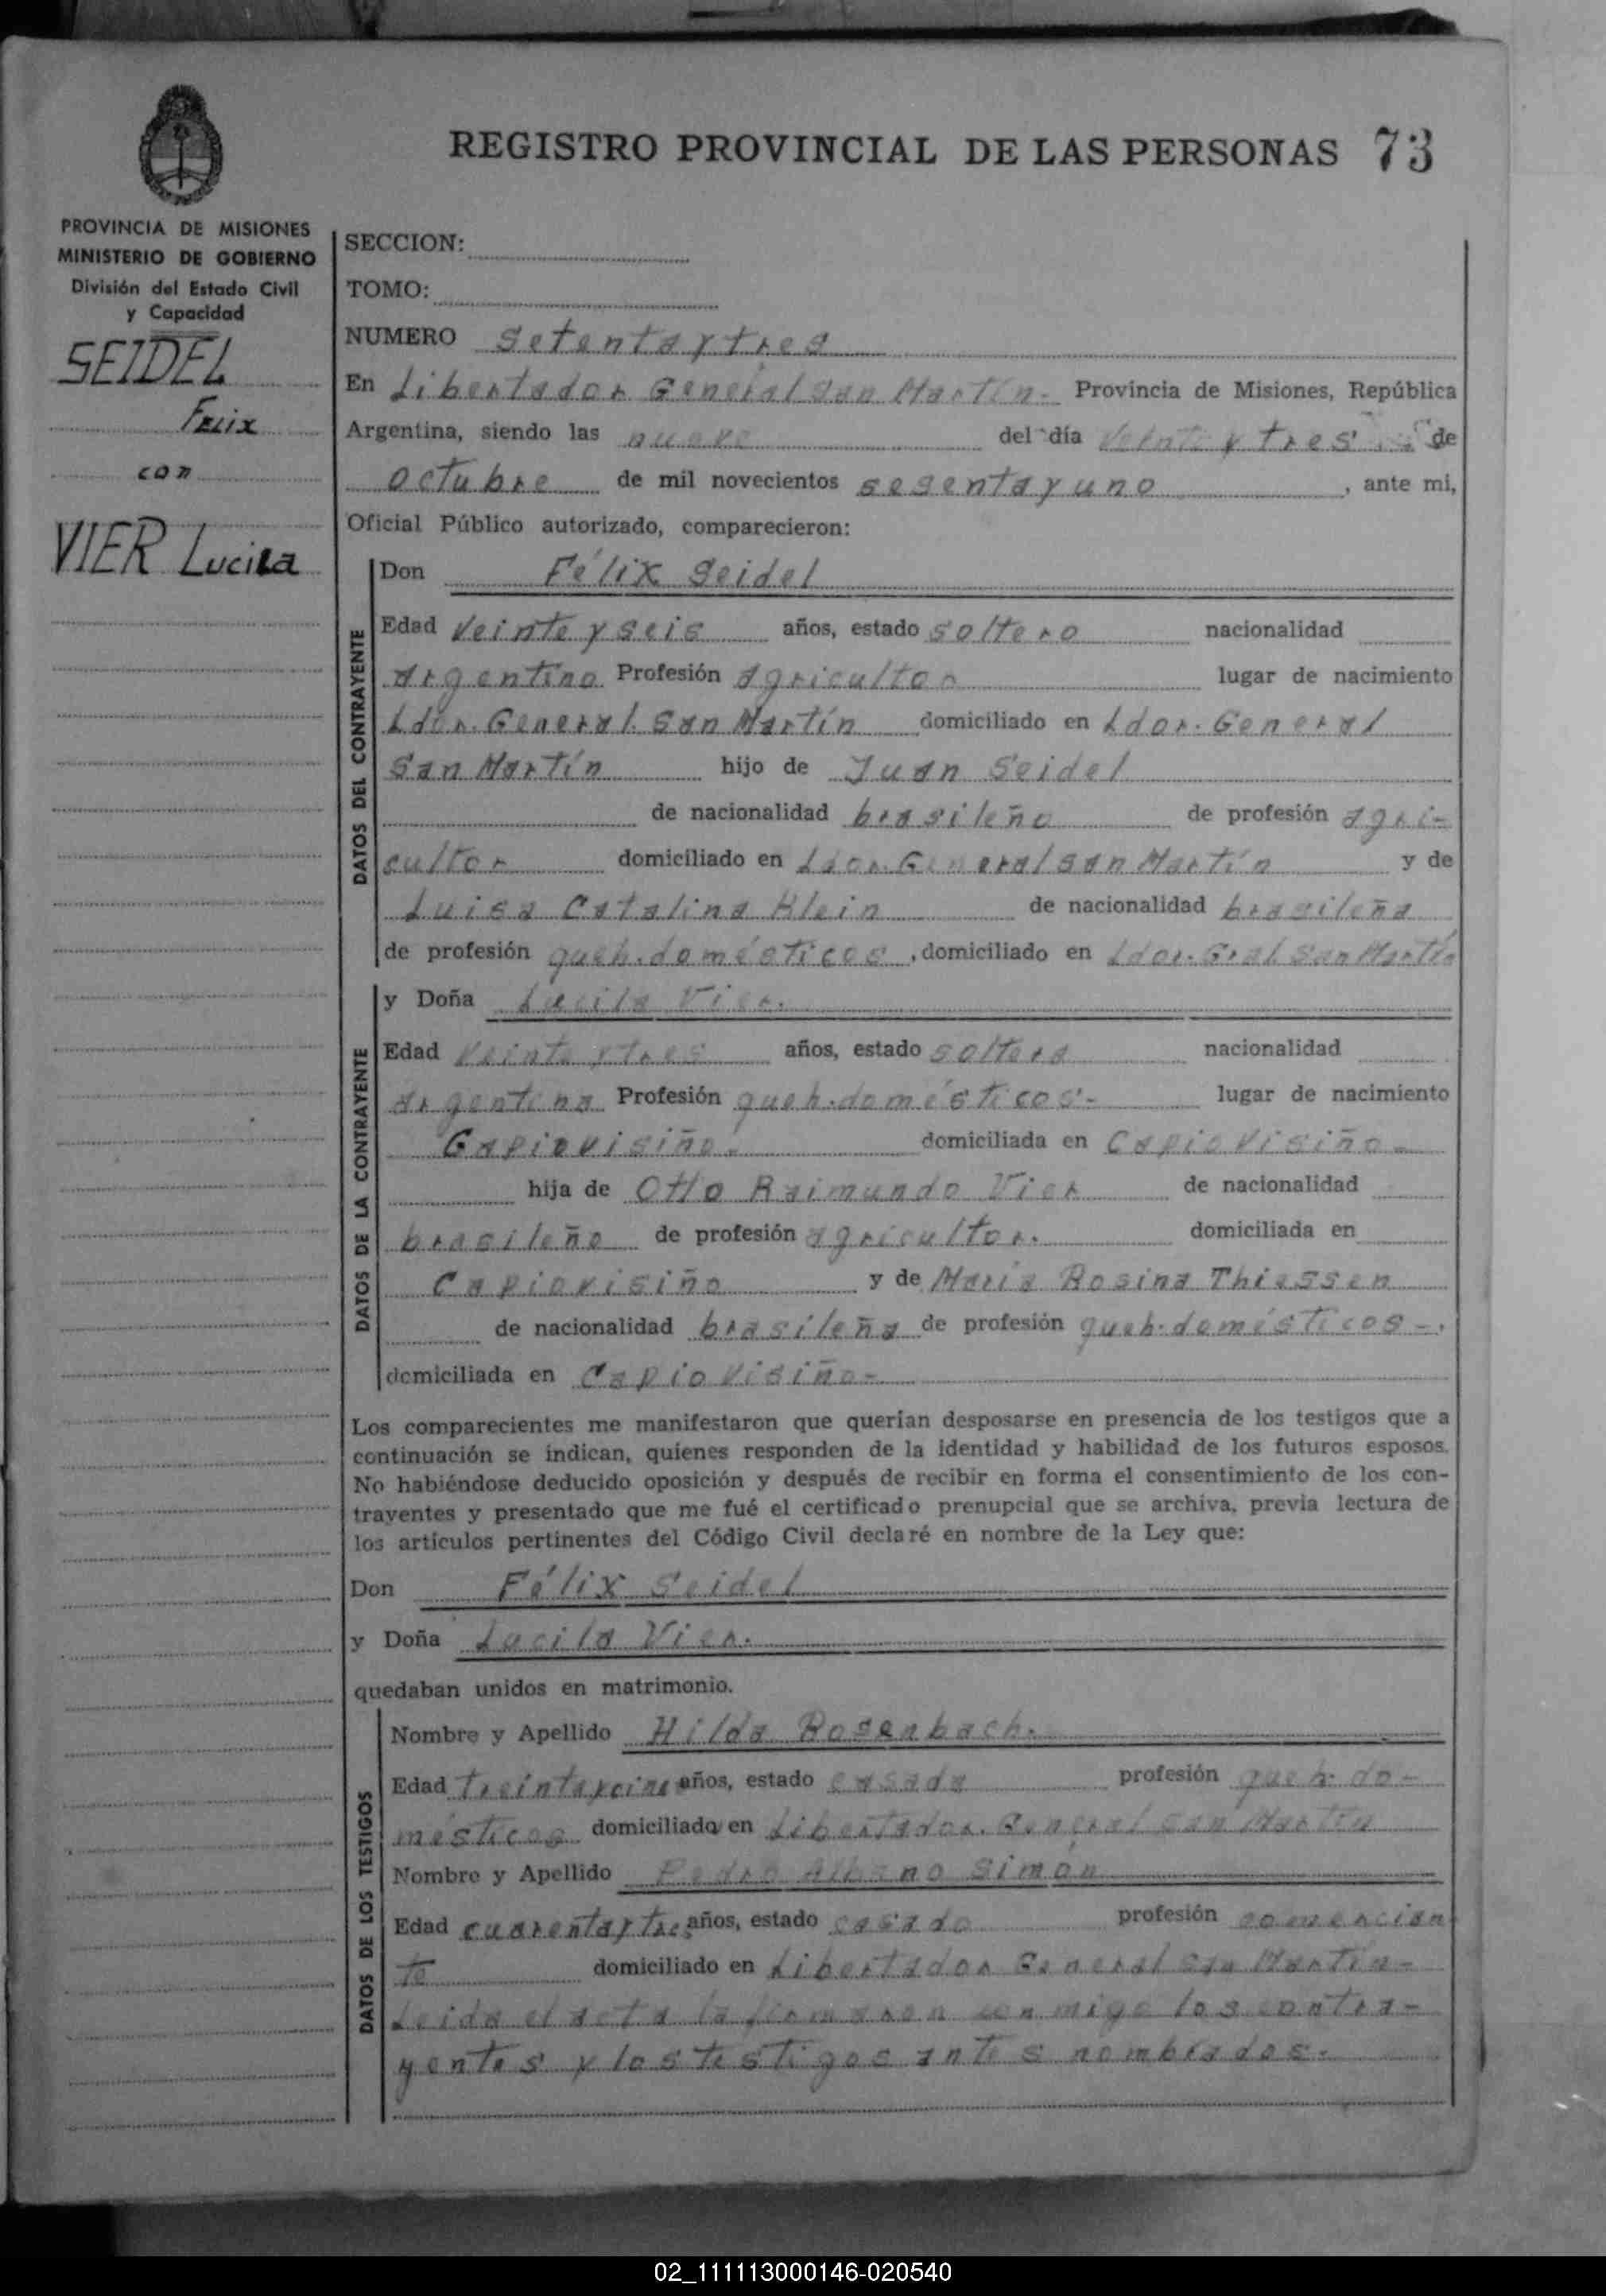 REGISTRO PROVINCIAL DE LAS PERSONAS 73
PROVINCIA DE MISIONES
MINISTERIO DE GOBIERNO
División del Estado Civil
y Capacidad
SEIDEL
Felix
con
VIER Lucila
SECCION:
TOMO:
NUMERO Setenta y tres
En Libertador General San Martín.- Provincia de Misiones, República
Argentina, siendo las nueve del día veinte y tres de
octubre de mil novecientos sesenta y uno, ante mi,
Oficial Público autorizado, comparecieron:
DATOS DEL CONTRAYENTE
Don Félix Seidel
Edad veinte y seis años, estado soltero nacionalidad
argentino Profesión agricultor lugar de nacimiento
Ldor. General San Martín domiciliado en Ldor. General
San Martín hijo de Juan Seidel
de nacionalidad brasileño de profesión agri-
cultor domiciliado en Ldor. General San Martín y de
Luisa Catalina Klein de nacionalidad brasileña
de profesión queh. domésticos, domiciliado en Ldor. Gral San Martín
DATOS DE LA CONTRAYENTE
y Doña Lucila Vier.
Edad veinte y tres años, estado soltera nacionalidad
argentina Profesión queh. domésticos.- lugar de nacimiento
Capioviciño. domiciliada en Capioviciño.-
hija de Otto Raimundo Vier de nacionalidad
brasileño de profesión agricultor. domiciliada en
Capioviciño y de María Rosina Thiessen
de nacionalidad brasileña de profesión queh. domésticos-,
domiciliada en Capioviciño-
Los comparecientes me manifestaron que querían desposarse en presencia de los testigos que a
continuación se indican, quienes responden de la identidad y habilidad de los futuros esposos.
No habiéndose deducido oposición y después de recibir en forma el consentimiento de los con-
trayentes y presentado que me fué el certificado prenupcial que se archiva, previa lectura de
los artículos pertinentes del Código Civil declaré en nombre de la Ley que:
Don Félix Seidel
y Doña Lucila Vier.
quedaban unidos en matrimonio.
DATOS DE LOS TESTIGOS
Nombre y Apellido Hilda Rosenbach.
Edad treinta y cinc años, estado casada profesión queh. do-
mésticos domiciliada en Libertador. General San Martín
Nombre y Apellido Pedro Albano Simón
Edad cuarenta y tres años, estado casado profesión comercian
te domiciliado en Libertador General San Martín-
Leida el acta la firmaron conmigo los contra-
yentes y los testigos antes nombrados.-
02_111113000146-020540